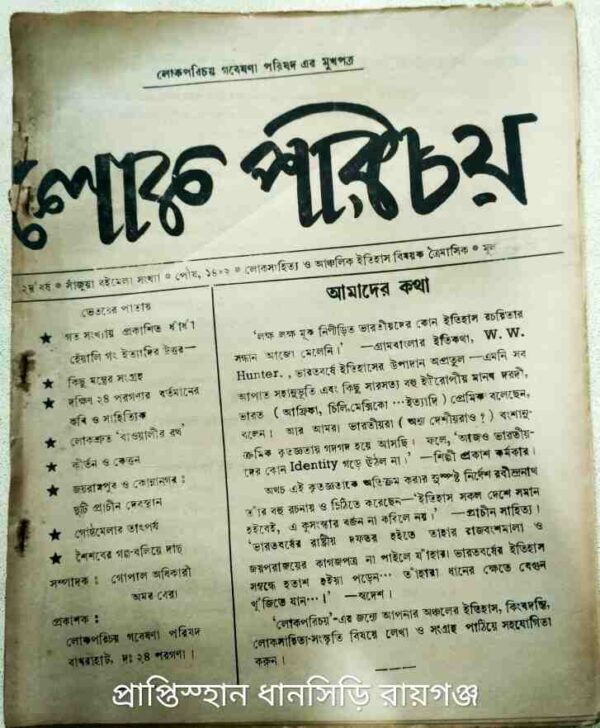 লোকপরিচয় গবেষণা পরিষদ এর মুখপত্র
লোক পরিচয়
২য় বর্ষ * সাঁজুয়া বইমেলা সংখ্যা * পৌষ, ১৪০২ * লোকসাহিত্য ও আঞ্চলিক ইতিহাস বিষয়ক ত্রৈমাসিক * মূল
ভেতরের পাতায়
★ গত সংখ্যায় প্রকাশিত ধাঁধা
হেঁয়ালি গং ইত্যাদির উত্তর—
★ কিছু মন্ত্রের সংগ্রহ
★ দক্ষিণ ২৪ পরগণার বর্তমানের
কবি ও সাহিত্যিক
★ লোকশ্রুত 'বাওয়ালীর রথ'
★ কীর্তন ও কেত্তন
★ জয়রামপুর ও কোন্নানগর :
দুটি প্রাচীন দেবস্থান
★ গোষ্ঠমেলার তাৎপর্য
★ শৈশবের গল্প-বলিয়ে দাদু
সম্পাদক : গোপাল অধিকারী
অমর বেরা
প্রকাশক :
লোকপরিচয় গবেষণা পরিষদ
বাখরাহাট, দঃ ২৪ পরগণা।
আমাদের কথা
'লক্ষ লক্ষ মূক নিপীড়িত ভারতীয়দের কোন ইতিহাস রচয়িতার
সন্ধান আজো মেলেনি।' —গ্রামবাংলার ইতিকথা, W. W.
Hunter. , ভারতবর্ষে ইতিহাসের উপাদান অপ্রতুল —এমনি সব
আপাত সহানুভূতি এবং কিছু সারসত্য বহু ইউরোপীয় মানব দরদী,
ভারত (আফ্রিকা, চিলি, মেক্সিকো ...ইত্যাদি) প্রেমিক বলেছেন,
বলেন। আর আমরা ভারতীয়রা (অন্য দেশীয়রাও ?) বংশানু-
ক্রমিক কৃতজ্ঞতায় গদগদ হয়ে আসছি। ফলে, 'আজও ভারতীয়-
দের কোন Identity গড়ে উঠল না।' —শিল্পী প্রকাশ কর্মকার।
অথচ এই কৃতজ্ঞতাকে অতিক্রম করার সুস্পষ্ট নির্দেশ রবীন্দ্রনাথ
তাঁর বহু রচনায় ও চিঠিতে করেছেন—'ইতিহাস সকল দেশে সমান
হইবেই, এ কুসংস্কার বর্জন না করিলে নয়।' —প্রাচীন সাহিত্য।
'ভারতবর্ষের রাষ্ট্রীয় দফতর হইতে তাহার রাজবংশমালা ও
জয়পরাজয়ের কাগজপত্র না পাইলে যাঁহারা ভারতবর্ষের ইতিহাস
সম্বন্ধে হতাশ হইয়া পড়েন... তাঁহারা ধানের ক্ষেতে বেগুন
খুঁজিতে যান...।' —স্বদেশ।
'লোকপরিচয়'-এর জন্যে আপনার অঞ্চলের ইতিহাস, কিংবদন্তি,
লোকসাহিত্য-সংস্কৃতি বিষয়ে লেখা ও সংগ্রহ পাঠিয়ে সহযোগিতা
করুন।
প্রাপ্তিস্হান ধানসিড়ি রায়গঞ্জ